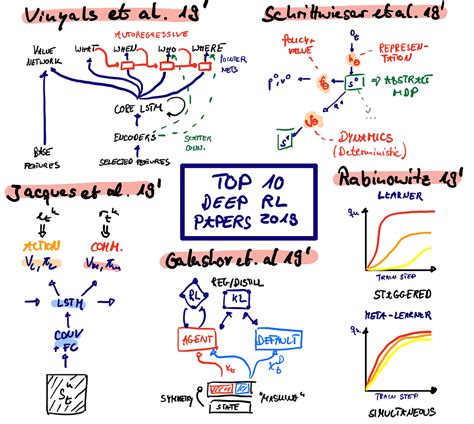 Vinyals et al. 19'
AUTOREGRESSIVE
VALUE NETWORK
WHAT
WHEN
WHO
WHERE
POINTER NETS
CORE LSTM
ENCODERS
SCATTER CONN.
BASE FEATURES
SELECTED FEATURES
Schrittwieser et al. 19'
POLICY + VALUE
REPRESEN-
TATION
ABSTRACT
MDP
DYNAMICS
(Deterministic)
Jacques et al. 19'
ACTION
COMM.
LSTM
CONV
+ FC
TOP 10
DEEP RL
PAPERS 2019
Galashov et. al 19'
REG/DISTILL
RL
KL
AGENT
DEFAULT
SYMMETRY
"MASKING"
STATE
Rabinowitz 19'
LEARNER
TRAIN STEP
STAGGERED
META-LEARNER
TRAIN STEP
SIMULTANEOUS